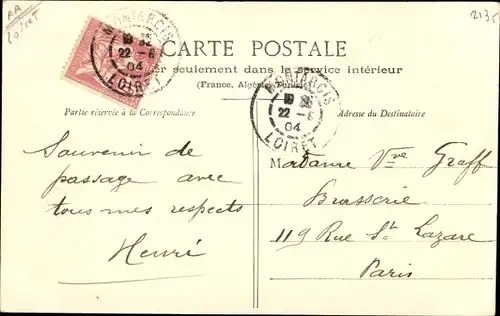 AA
Loiret
213F
MONTARGIS
22-6
04
LOIRET
CARTE POSTALE
er seulement dans le service intérieur
(France, Algérie, Tunisie)
MONTARGIS
22-6
04
LOIRET
Partie réservée à la Correspondance
Adresse du Destinataire
Souvenir de
passage avec
tous mes respects
Henri
Madame Vve Graff
Brasserie
119 Rue St Lazare
Paris